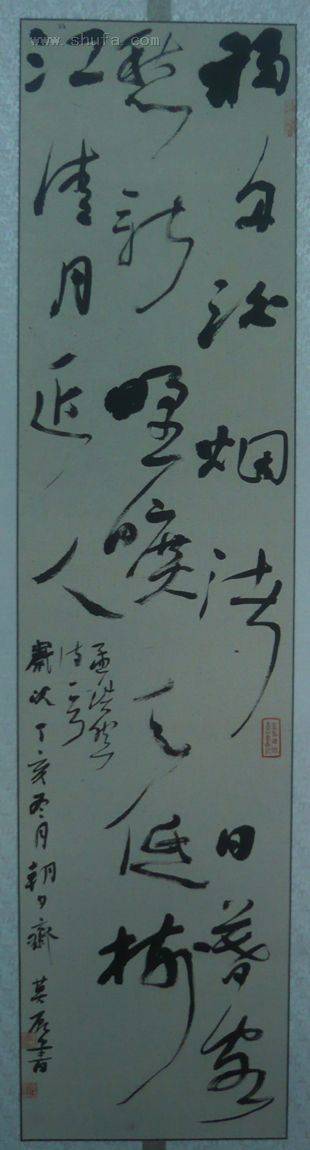 www.shufa.com
移舟泊烟渚日暮客
愁新野曠天低樹
江清月近人
孟浩然
诗一首
歲次丁亥冬月朝夕齋莫